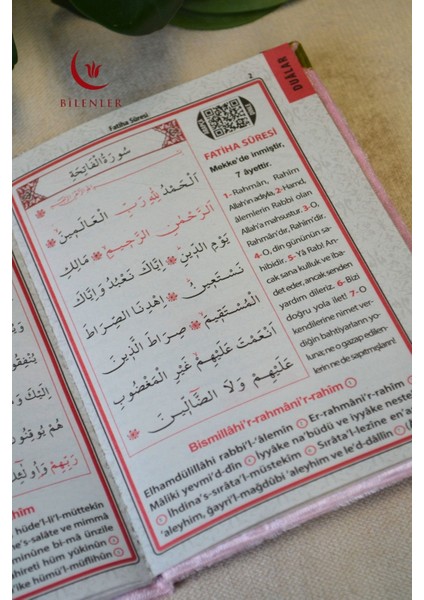 BİLENLER
Fatiha Sûresi
2
DUALAR
سُورَةُ الْفَاتِحَةِ
اَلْحَمْدُ لِلّٰهِ رَبِّ الْعَالَمِينَ
اَلرَّحْمٰنِ الرَّحِيمِ مَالِكِ
يَوْمِ الدِّينِ اِيَّاكَ نَعْبُدُ وَاِيَّاكَ
نَسْتَعِينُ اِهْدِنَا الصِّرَاطَ
الْمُسْتَقِيمَ صِرَاطَ الَّذِينَ
اَنْعَمْتَ عَلَيْهِمْ غَيْرِ الْمَغْضُوبِ
عَلَيْهِمْ وَلَا الضَّالِّينَ
FATİHA SÛRESİ
Mekke'de inmiştir,
7 âyettir.
1-Rahmân, Rahîm
Allah'ın adıyla. 2-Hamd,
âlemlerin Rabbi olan
Allah'a mahsustur. 3-O,
Rahmân'dır, Rahîm'dir.
4-O, din gününün sa-
hibidir. 5-Yâ Rab! An-
cak sana kulluk ve iba-
det eder, ancak senden
yardım dileriz. 6-Bizi
doğru yola ilet! 7-O
kendilerine nimet ver-
diğin bahtiyarların yo-
luna; ne o gazap edilen-
lerin ne de sapıtmışların!
Bismillâhi'r-rahmâni'r-rahîm
Elhamdülillâhi rabbi'l-'âlemîn Er-rahmâni'r-rahîm
Mâliki yevmi'd-dîn İyyâke na'büdü ve iyyâke nesteî
İhdina's-sırâta'l-müstekîm Sırâta'l-lezîne en'a
'aleyhim, ğayri'l-mağdûbi 'aleyhim ve le'd-dâllîn
رَبِّهِمْ
hîm
hüde'l-li'l-müttekîn
e's-salâte ve mimmâ
minûne bi-mâ ünzile
hireti hüm yûkinûn
'ike hümü'l-müflihûn